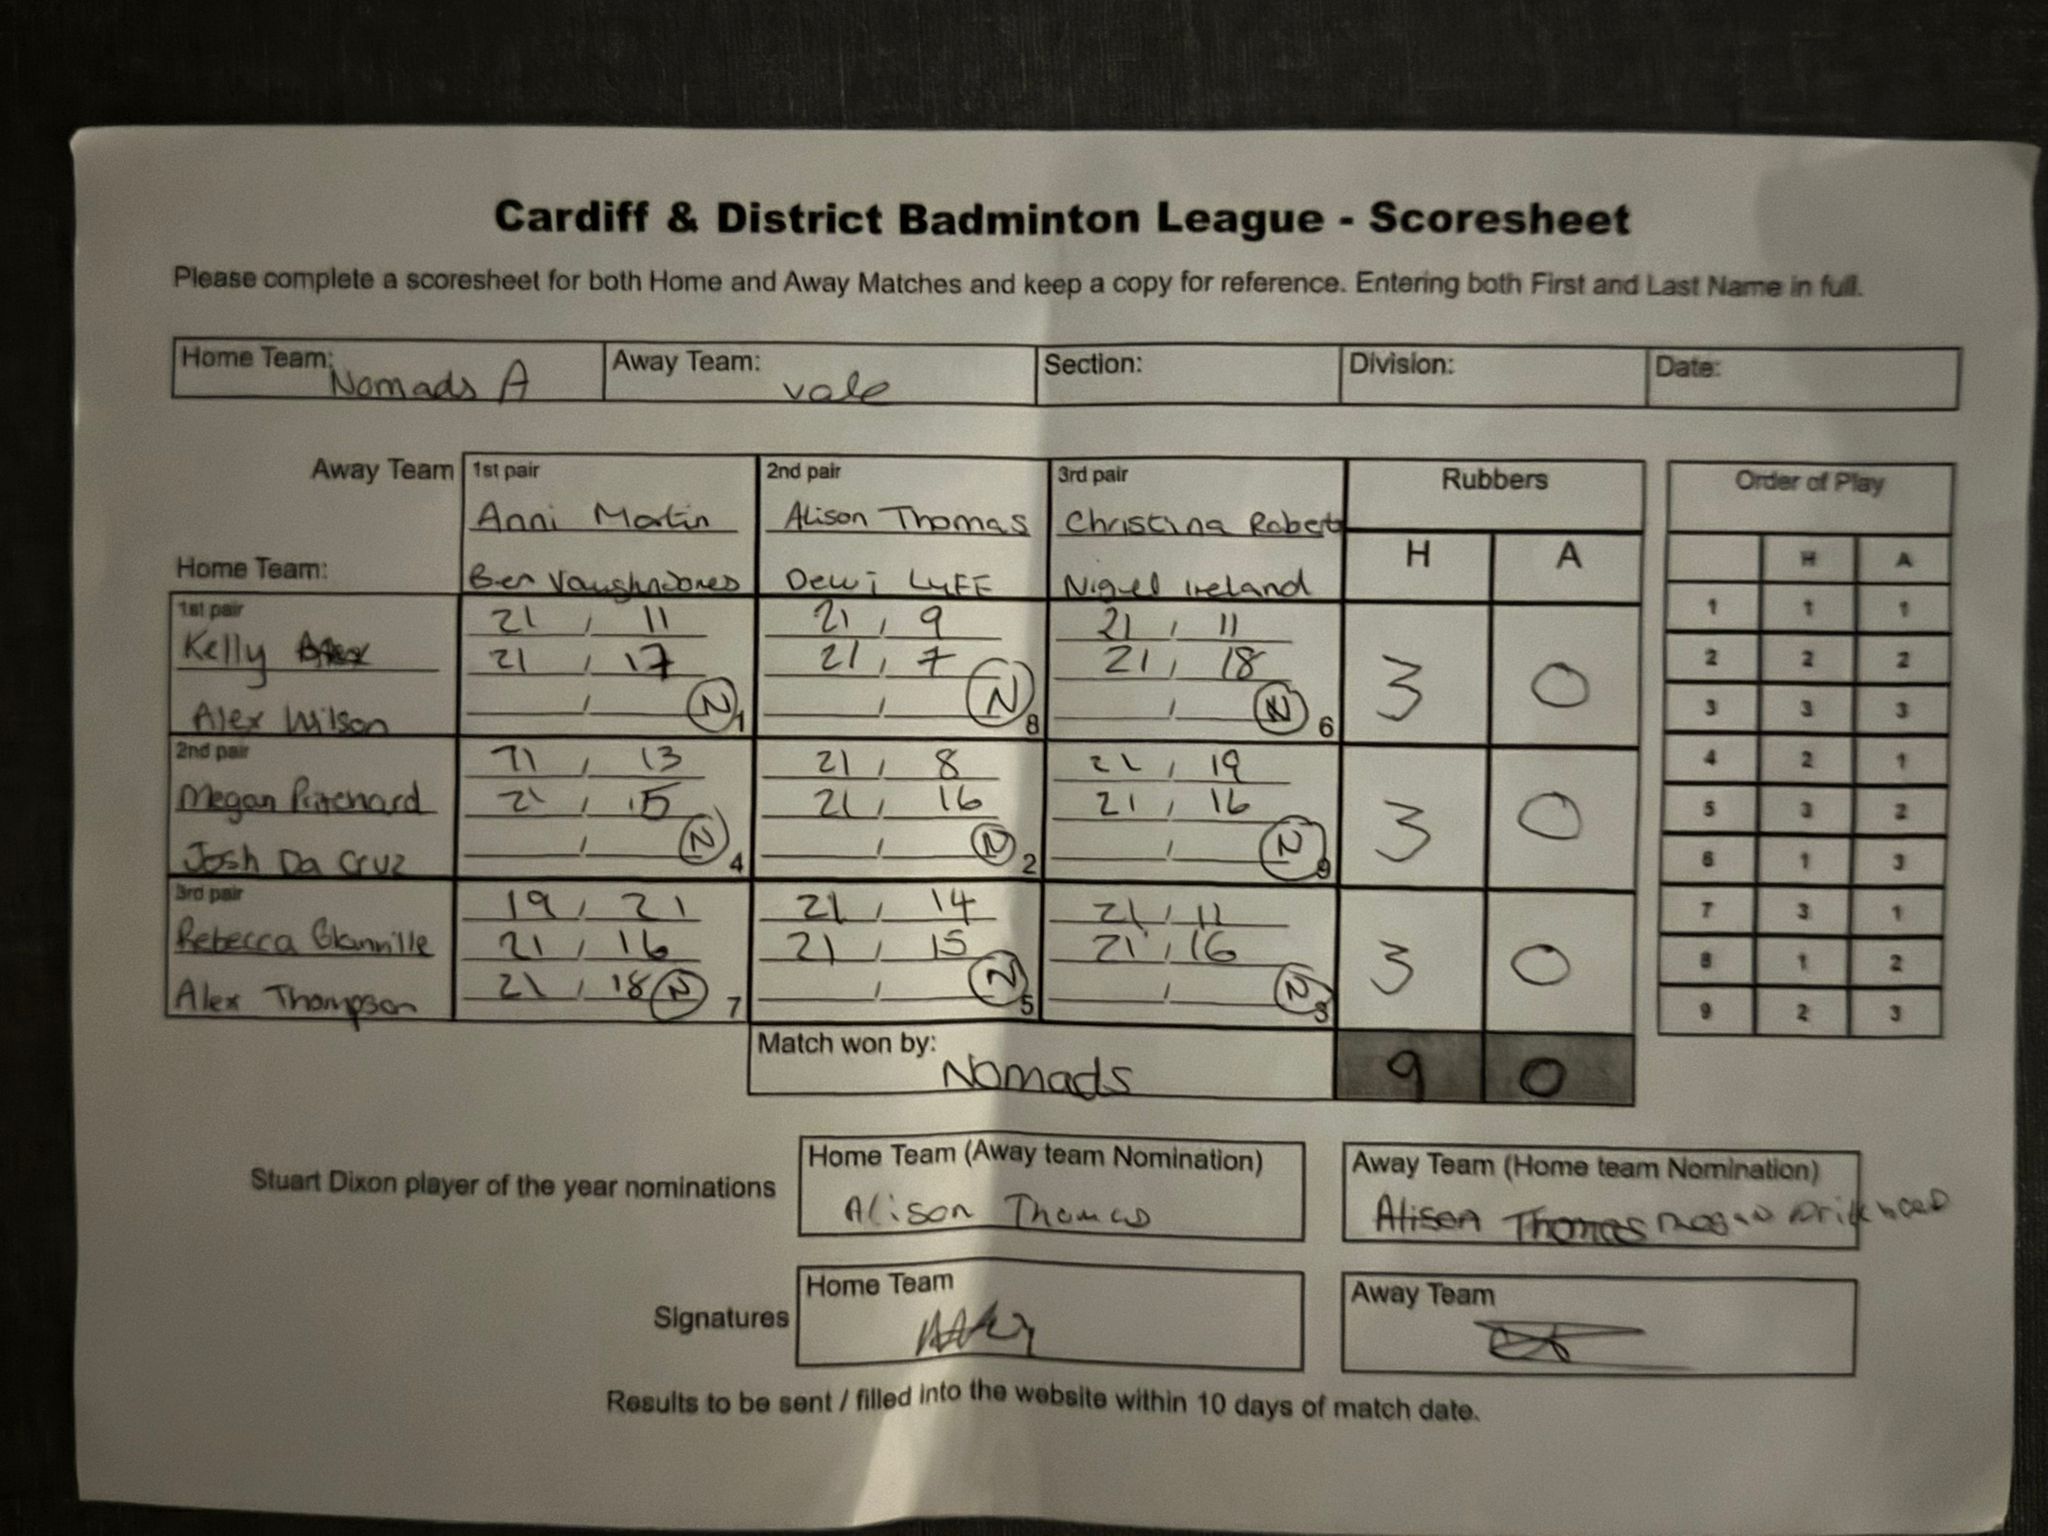 Cardiff & District Badminton League - Scoresheet
Please complete a scoresheet for both Home and Away Matches and keep a copy for reference. Entering both First and Last Name in full.
Home Team: Nomads A Away Team: Vale Section: Division: Date:
Away Team 1st pair 2nd pair 3rd pair Rubbers Order of Play
Anni Martin Alison Thomas Christina Robert
H A H A
Home Team: Ben Vaughn Jones Dewi Lyff Nigel Ireland
1st pair 21 , 11 21 , 9 21 , 11 1 1 1
Kelly 21 , 17 21 , 7 21 , 18 3 0 2 2 2
Alex Wilson / N 1 / N 8 / N 6 3 3 3
2nd pair 21 , 13 21 , 8 21 , 19 4 2 1
Megan Pritchard 21 , 15 21 , 16 21 , 16 3 0 5 3 2
Josh Da Cruz / N 4 / N 2 / N 9 6 1 3
3rd pair 19 , 21 21 , 14 21 , 11 7 3 1
Rebecca Glannille 21 , 16 21 , 15 21 , 16 3 0 8 1 2
Alex Thompson 21 , 18 N 7 / N 5 / N 3 9 2 3
Match won by: Nomads 9 0
Stuart Dixon player of the year nominations
Home Team (Away team Nomination) Away Team (Home team Nomination)
Alison Thomas Alison Thomas
Signatures
Home Team Away Team
Results to be sent / filled into the website within 10 days of match date.